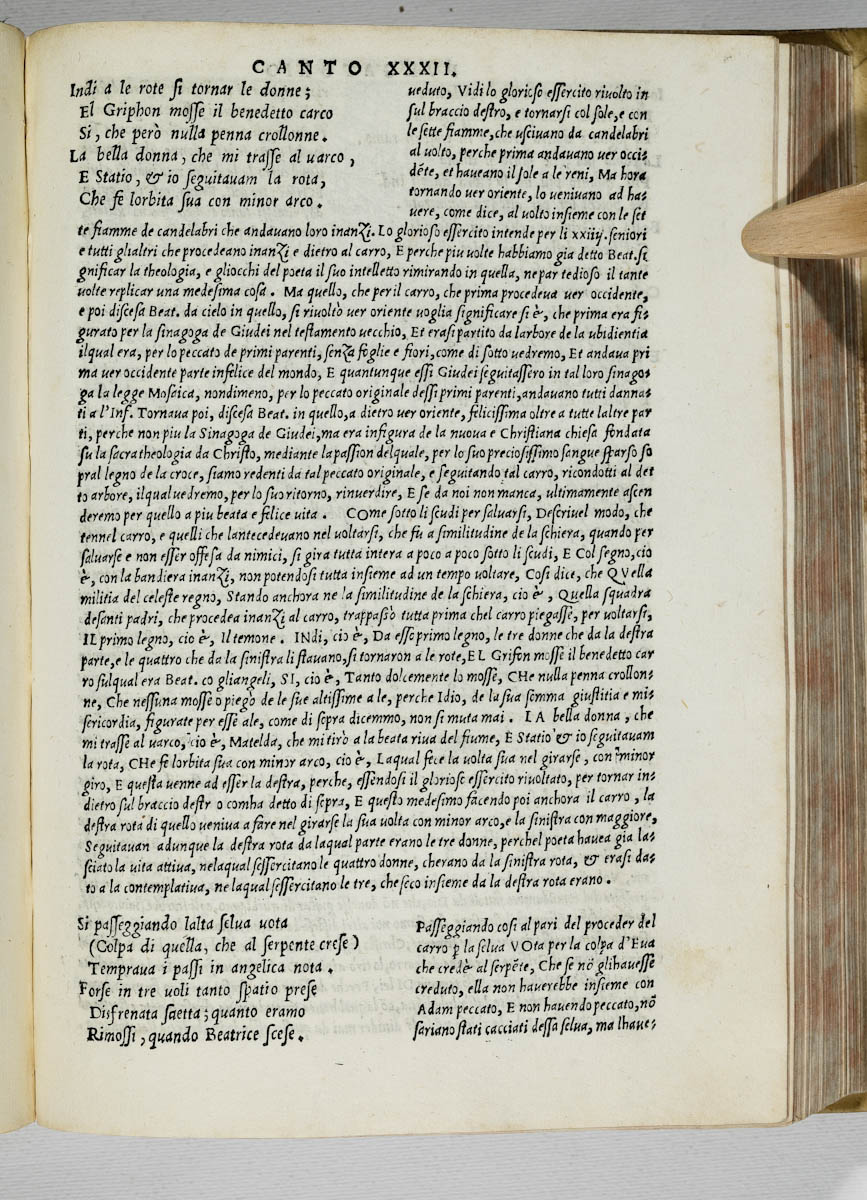 CANTO XXXII.
Indi a le rote si tornar le donne;
El Griphon mosse il benedetto carco
Si, che però nulla penna crollonne.
La bella donna, che mi trasse al uarco,
E Statio, & io seguitauam la rota,
Che fe lorbita sua con minor arco.
ueduto, Vidi lo glorioso essercito riuolto in
sul braccio destro, e tornarsi col sole, e con
le sette fiamme, che usciuano da candelabri
al uolto, perche prima andauano uer occi-
dēte, et haueano il sole a le reni, Ma hora
tornando uer oriente, lo ueniuano ad ha-
uere, come dice, al uolto insieme con le set
te fiamme de candelabri che andauano loro inanzi. Lo glorioso essercito intende per li xxiiij. seniori
e tutti glialtri che procedeano inanzi e dietro al carro, E perche piu uolte habbiamo gia detto Beat. si
gnificar la theologia, e gliocchi del poeta il suo intelletto rimirando in quella, ne par tedioso il tante
uolte replicar una medesima cosa. Ma quello, che per il carro, che prima procedeua uer occidente,
e poi discesa Beat. da cielo in quello, si riuoltò uer oriente uoglia significare si è, che prima era fi-
gurato per la sinagoga de Giudei nel testamento uecchio, Et erasi partito da larbore de la ubidientia
ilqual era, per lo peccato de primi parenti, senza foglie e fiori, come di sotto uedremo, Et andaua pri
ma uer occidente parte infelice del mondo, E quantunque essi Giudei seguitassero in tal loro sinago-
ga la legge Mosaica, nondimeno, per lo peccato originale dessi primi parenti, andauano tutti danna-
ti a l'Inf. Tornaua poi, discesa Beat. in quello, a dietro uer oriente, felicissima oltre a tutte laltre par
ti, perche non piu la Sinagoga de Giudei, ma era in figura de la nuoua e Christiana chiesa fondata
su la sacra theologia da Christo, mediante la passion del quale, per lo suo preciosissimo sangue sparso so
pral legno de la croce, siamo redenti da tal peccato originale, e seguitando tal carro, ricondotti al det
to arbore, ilqual uedremo, per lo suo ritorno, rinuerdire, E se da noi non manca, ultimamente ascen
deremo per quello a piu beata e felice uita. COme sotto li scudi per saluarsi, Descriuel modo, che
tennel carro, e quelli che lantecedeuano nel uoltarsi, che fu a similitudine de la schiera, quando per
saluarse e non esser offesa da nimici, si gira tutta intera a poco a poco sotto li scudi, E Col segno, cio
è, con la bandiera inanzi, non potendosi tutta insieme ad un tempo uoltare, Cosi dice, che QVella
militia del celeste regno, Stando anchora ne la similitudine de la schiera, cio è, Quella squadra
desanti padri, che procedea inanzi al carro, trappassò tutta prima chel carro piegasse, per uoltarsi,
IL primo legno, cio è, Il temone. INdi, cio è, Da esso primo legno, le tre donne che da la destra
parte, e le quattro che da la sinistra li stauano, si tornaron a le rote, EL Grifon mosse il benedetto car
ro sulqual era Beat. co gliangeli, SI, cio è, Tanto dolcemente lo mosse, CHe nulla penna crollon-
ne, Che nessuna mosse o piegò de le sue altissime ale, perche Idio, de la sua somma giustitia e mi-
sericordia, figurate per esse ale, come di sopra dicemmo, non si muta mai. LA bella donna, che
mi trasse al uarco, cio è, Matelda, che mi tirò a la beata riua del fiume, E Statio & io seguitauam
la rota, CHe fe lorbita sua con minor arco, cio è, Laqual fece la uolta sua nel girarse, con minor
giro, E questa uenne ad esser la destra, perche, essendosi il glorioso essercito riuoltato, per tornar in-
dietro sul braccio destr o comha detto di sopra, E questo medesimo facendo poi anchora il carro, la
destra rota di quello ueniua a fare nel girarse la sua uolta con minor arco, e la sinistra con maggiore,
Seguitauan adunque la destra rota da laqual parte erano le tre donne, perchel poeta hauea gia la-
sciato la uita attiua, nelaqual sessercitano le quattro donne, cherano da la sinistra rota, & erasi da-
to a la contemplatiua, ne laqual sessercitano le tre, che seco insieme da la destra rota erano.
Si passeggiando lalta selua uota
(Colpa di quella, che al serpente crese)
Tempraua i passi in angelica nota.
Forse in tre uoli tanto spatio prese
Disfrenata saetta; quanto eramo
Rimossi, quando Beatrice scese.
Passeggiando cosi al pari del proceder del
carro p̄ la selua VOta per la colpa d'Eua
che credè al serpēte, Che se nō glihauesse
creduto, ella non hauerebbe insieme con
Adam peccato, E non hauendo peccato, nō
sariano stati cacciati dessa selua, ma lhaue-